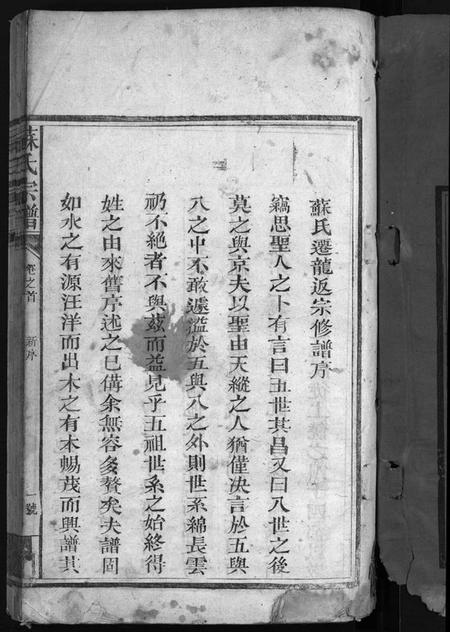 蘇氏遷龍返宗修譜序
竊思聖人之卜有言曰五世其昌又曰八世之後
莫之與京夫以聖由天縱之人猶僅決言於五與
八之中不敢遽濫於五與八之外則世系綿長雲
礽不絶者不與茲而益見乎五祖世系之始終得
姓之由來舊序述之已備余無容多贅矣夫譜固
如水之有源汪洋而出木之有本暢茂而興譜其
蘇氏宗譜
卷之首
新序
一號